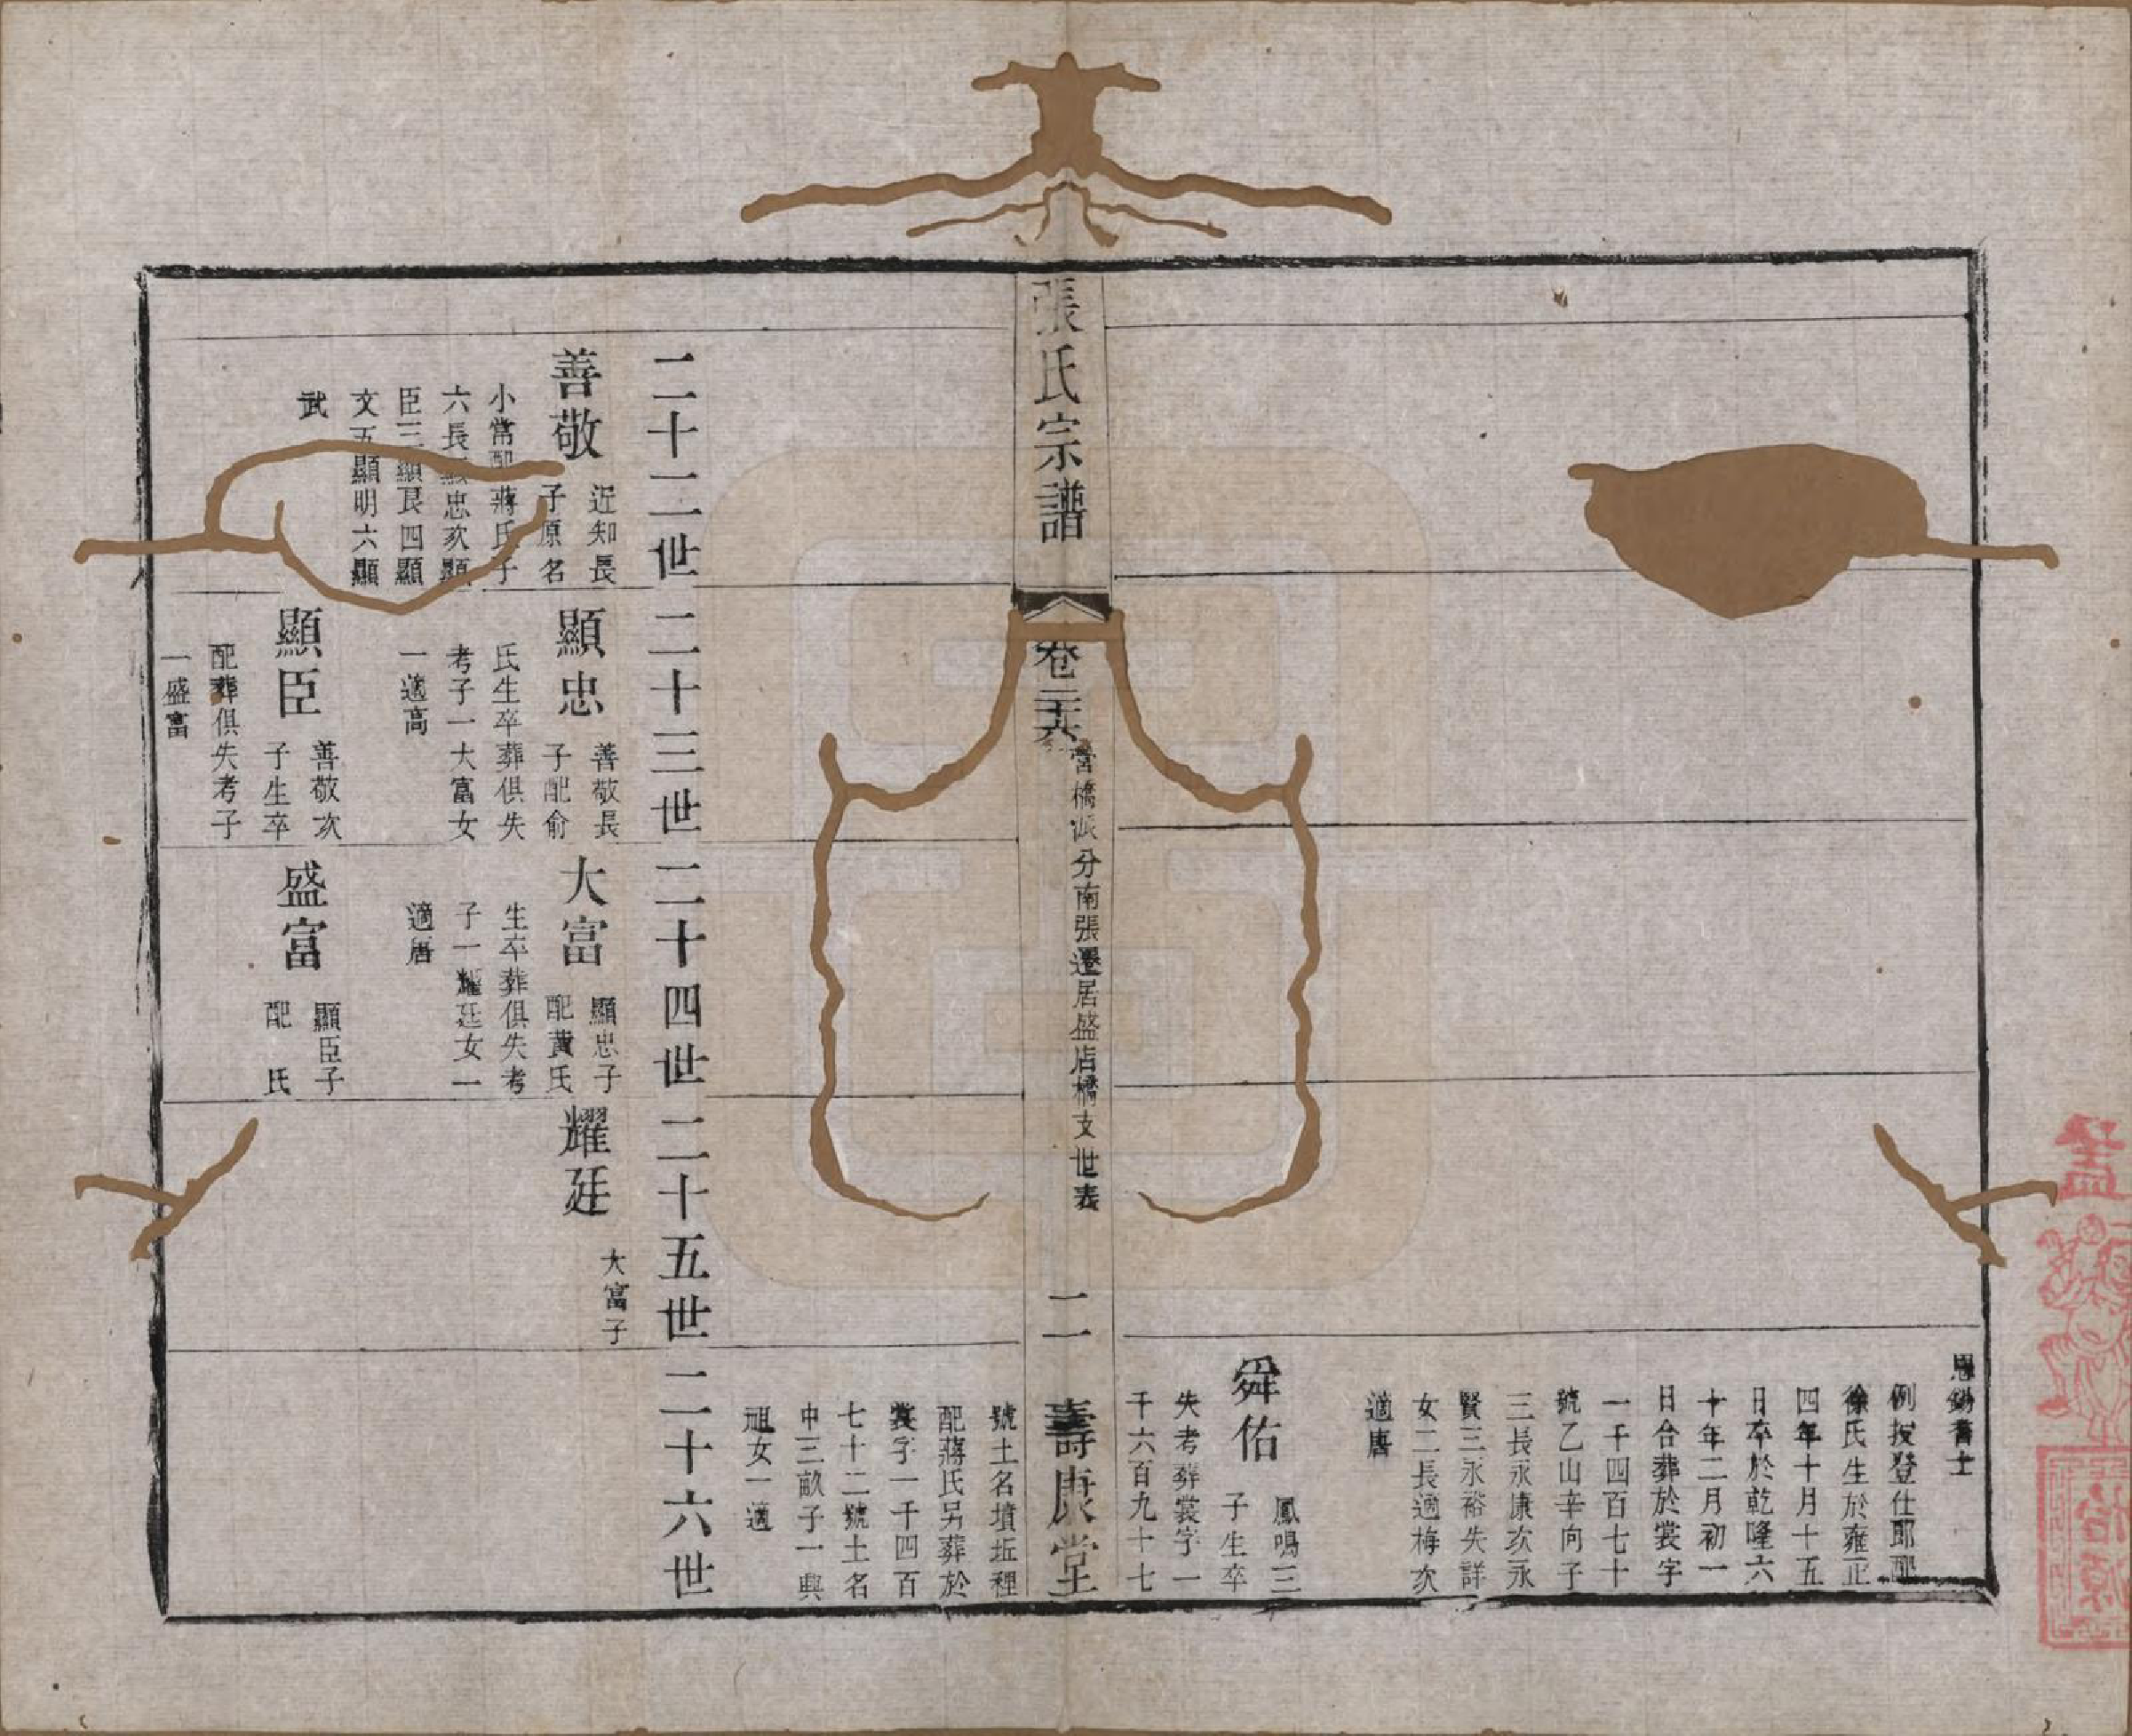 恩錫耆士
例授登仕郎配
徐氏生於雍正
四年十月十五
日卒於乾隆六
十年二月初一
日合葬於裳字
一千四百七十
號乙山辛向子
三長永康次永
賢三永裕失詳
女二長適梅次
適唐
舜佑
鳳鳴三
子生卒
失考葬裳字一
千六百九十七
張氏宗譜
卷二十六
營橋派分南張遷居盛店橋支世表
二
壽康堂
號土名墳坵裡
配蔣氏另葬於
裳字一千四百
七十二號土名
中三畝子一興
祖女一適
二十二世
二十三世
二十四世
二十五世
二十六世
善敬
近知長
子原名
小常配蔣氏子
六長顯忠次顯
臣三顯良四顯
文五顯明六顯
武
顯忠
善敬長
子配俞
氏生卒葬俱失
考子一大富女
一適高
大富
顯忠子
配黃氏
生卒葬俱失考
子一耀廷女一
適唐
耀廷
大富子
顯臣
善敬次
子生卒
配葬俱失考子
一盛富
盛富
顯臣子
配 氏